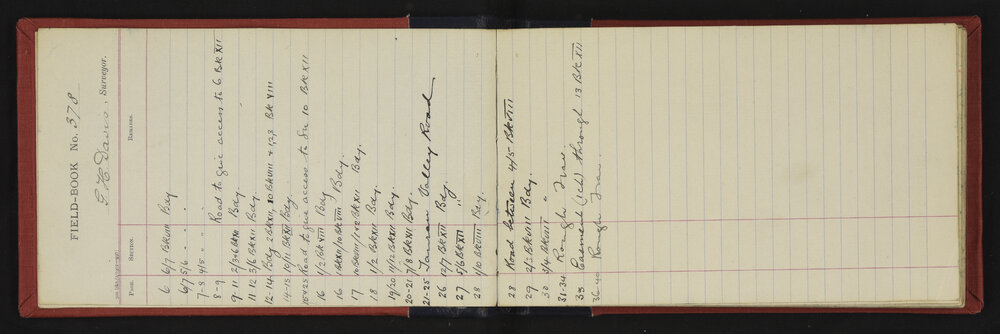 FIELD-BOOK No. 378
G. H. Davis, Surveyor.
Page. Section. Remarks.
6 6/7 Bk VIII Bdy
6/7 5/6 " " "
7-8 4/5 " " "
8-9 Road to give access to 6 Bk XII
9-11 2/3&6 Bk XII Bdy.
11-12 3/6 Bk XII Bdy.
12-14 Bdy 2 Bk XII, 10 Bk VIII & 1,2,3 Bk XIII
14-15 10/11 Bk XII Bdy.
Road to give access to Sec 10 Bk XII
16 1/2 Bk XIII Bdy
16 Bk XII/10 Bk VIII Bdy.
17 10 Bk VIII/1&2 Bk XII Bdy.
18 1/2 Bk XII Bdy.
19/20 11/12 Bk XII Bdy.
20-21 7/8 Bk XII Bdy.
21-25 Valley Road
26 12/7 Bk XII Bdy.
27 5/6 Bk XII "
28 1/10 Bk VIII Bdy
28 Road between 4/5 Bk VIII
29 2/3 Bk VIII Bdy.
30 3/4 Bk VIII "
31-34 Rough Trav.
35 (1ch) through 13 Bk XII
36-40 Rough Tra.